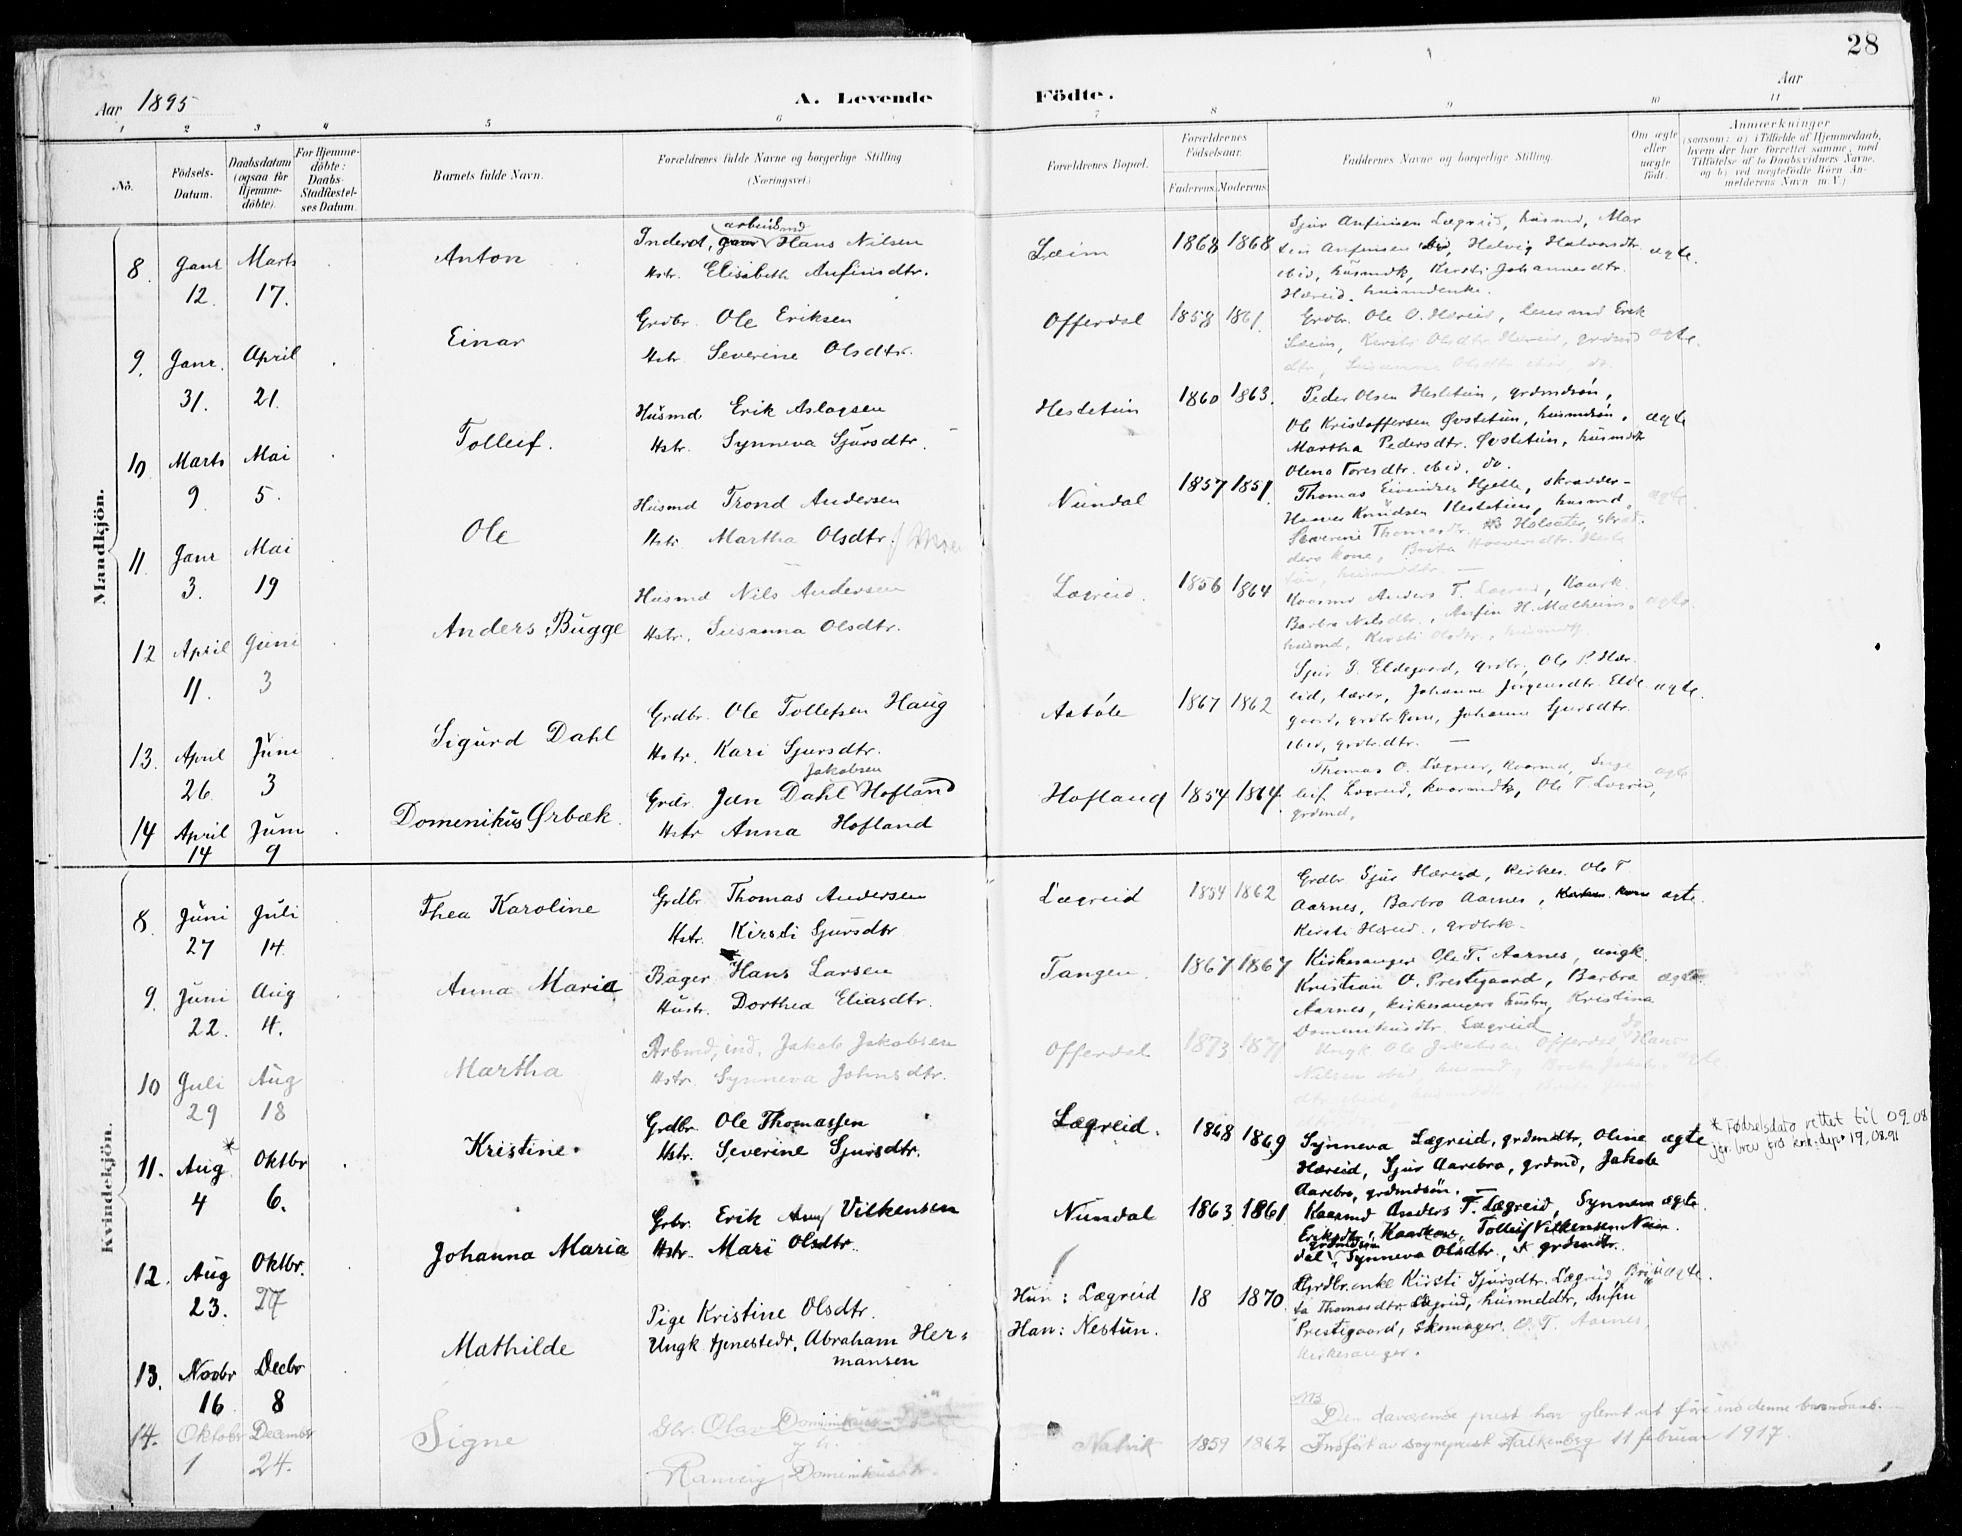 28
Aar 1895
A. Levende Födte.
Aar
1 2 3 4 5 6 7 8 9 10 11
No.
Födsels-Datum.
Daabsdatum (ogsaa for Hjemme-döbte).
For Hjemme-döbte: Daabs-Stadfæstel-ses Datum.
Barnets fulde Navn.
Forældrenes fulde Navne og borgerlige Stilling (Næringsvei)
Forældrenes Bopæl.
Forældrenes Födselsaar.
Faderens. Moderens.
Faddernes Navne og borgerlige Stilling.
Om ægte eller uægte födt.
Anmærkninger
(saasom: a) i Tilfælde af Hjemmedaab, hvem der har forrettet samme, med Tilföielse af to Daabsvidners Navne, og b) ved uægtefödte Börn An-melderens Navn m. V.)
Mandkjön.
8. Janr 12. Marts 17. Anton
arbeidsmd
Inderst, Hans Nilsen
Hstr. Elisabeth Anfinsdtr.
Læim 1868 1868
Sjur Anfinsen Lægreid, husmd, Mar
tin Anfinsen ibid, Helvig Halvorsdtr
ibid, husmdk, Kirsti Johannesdtr.
Hæreid, husmdenke.
ægte.
9. Janr. 31. April 21. Einar
Grdbr. Ole Eriksen
Hstr. Severine Olsdtr.
Offerdal 1858 1861.
Grdbr. Ole O. Hæreid, Erik
Læim, Kirsti Olsdtr Hæreid, grdmd
dtr, Susanna Olsdtr ibid, do.
ægte.
10 Marts 9. Mai 5. Tolleif.
Husmd Erik Aslagsen
Hstr. Synneva Sjursdtr.
Hestetun 1860 1863.
Peder Olsen Hestetun, grdmdsön,
Ole Kristoffersen Øvstetun, husmdsön,
Martha Pedersdtr. Øvstetun, husmdtr
Olena Toresdtr. ibid, do.
ægte
11. Janr 3. Mai 19 Ole
Husmd Trond Andersen
Hstr Martha Olsdtr.
Nundal 1857 1851
Thomas Eivindsen Hjelle, skrædder-
Haaver Knudsen Hestetun, husmd,
Severine Thomasdtr. Holsæter, skræd.
ders kone, Brita Haaversdtr. Heste
tun, husmddtr.
ægte
12 April 11. Juni 3 Anders Bugge
Husmd Nils Andersen
Hstr. Susanna Olsdtr.
Lægreid. 1856 1864
Kaarmd Anders T. Lægreid, Kaark.
Barbro Nilsdtr., Anfin H. Mælheim,
husmd, Kirsti Olsdtr., husmdk.
ægte
13. April 26. Juni 3 Sigurd Dahl
Grdbr. Ole Tollefsen Haug
Hstr. Kari Sjursdtr.
Aaböle 1867 1862
Sjur J. Eldegaard, grdbr, Ole P. Hær
eid, lærer, Johanne Jörgensdtr. Elde
gaard, grdbrkone, Johanne Sjursdtr.
ibid, grdbrdtr.
ægte.
14 April 14 Juni 9 Domenikus Ørbæk.
Jakobsen
Grdr. Jan Dahl Hofland
Hstr Anna Hofland
Hofland 1854 1864
Thomas O. Lægreid, kaarmd, Inge
leif Lægreid, kaarmdk, Ole T. Lægreid,
grdmd.
ægte
Kvindekjön.
8. Juni 27 Juli 14. Thea Karoline
Grdbr Thomas Andersen
Hstr. Kirsti Sjursdtr
Lægreid 1854 1862
Grdbr. Sjur Hæreid, Kirkes. Ole T.
Aarnes, Barbro Aarnes,
Kirsti Hæreid, grdbrk.
ægte.
9. Juni 22. Aug 4. Anna Maria
Bager Hans Larsen
Hustr. Dorthea Eliasdtr.
Tangen. 1867 1867
Kirkesanger Ole T. Aarnes, ungk.
Kristian O. Prestegaard, Barbra
Aarnes, kirkesangers hustru, Kristina
Domenikusdtr. Lægreid.
ægte.
10 Juli 29 Aug 18 Martha
Arbmd, ind. Jakob Jakobsen
Hstr. Synneva Johnsdtr.
Offerdal 1873 1871
Ungk Ole Jakobsen Offerdal, Hans
Nilsen ibid, husmd, Brita Jakobs
dtr. ibid, husmddtr
ægte.
11. Aug* 4 Oktbr 6. Kristine.
Grdbr. Ole Thomassen
Hstr. Severine Sjursdtr.
Lægreid. 1868 1869
Synneva Lægreid, grdmdtr, Oline
Hæreid, Sjur Aarebro, grdmd, Jakob
Aarebro, grdmdsön.
ægte
* Fødselsdato rettet til 09.08
jfr. brev frå kirk.dep. 19.08.91
12. Aug 23. Oktbr. 27 Johanna Maria
Grbr. Erik Vilkensen
Hstr. Mari Olsdtr.
Nundal 1863 1861
Kaarmd Anders T. Lægreid, Synneva
Eriksdtr, Kaarkone, Tolleif Vilkensen Nun
grdmdsön
dal, Synneva Olsdtr., grdmdtr.
ægte
13. Novbr 16 Decbr 8 Mathilde
Pige Kristine Olsdtr.
Ungk. tjenestedr. Abraham Her-
mansen
Hun: Lægreid
Han: Nestun.
18 1870
Grdbr.enke Kirsti Sjursdtr. Lægreid, Bri
ta Thomasdtr. Lægreid, husmddtr, Anfin
Prestegaard, skomager, O. T. Aarnes,
kirkesanger.
uægte.
14. Oktober 1 December 24. Signe
Gbr. Olav Dominikus
Ranveig Dominikusdtr.
Natvik 1859 1862
NB
Den daværende prest har glemt at före ind denne barnedaab.
Indfört av sogneprest Falkenberg 11 februar 1917.